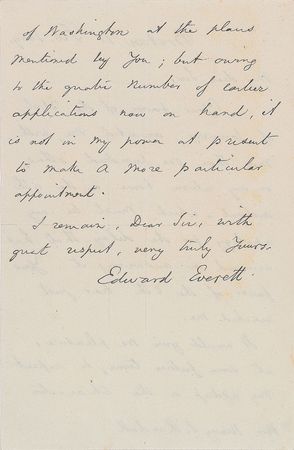 of Washington at the places
mentioned by You; but owing
to the great number of earlier
applications now on hand, it
is not in my power at present
to make a more particular
appointment.
I remain, Dear Sir, with
great respect, very truly Yours.
Edward Everett.